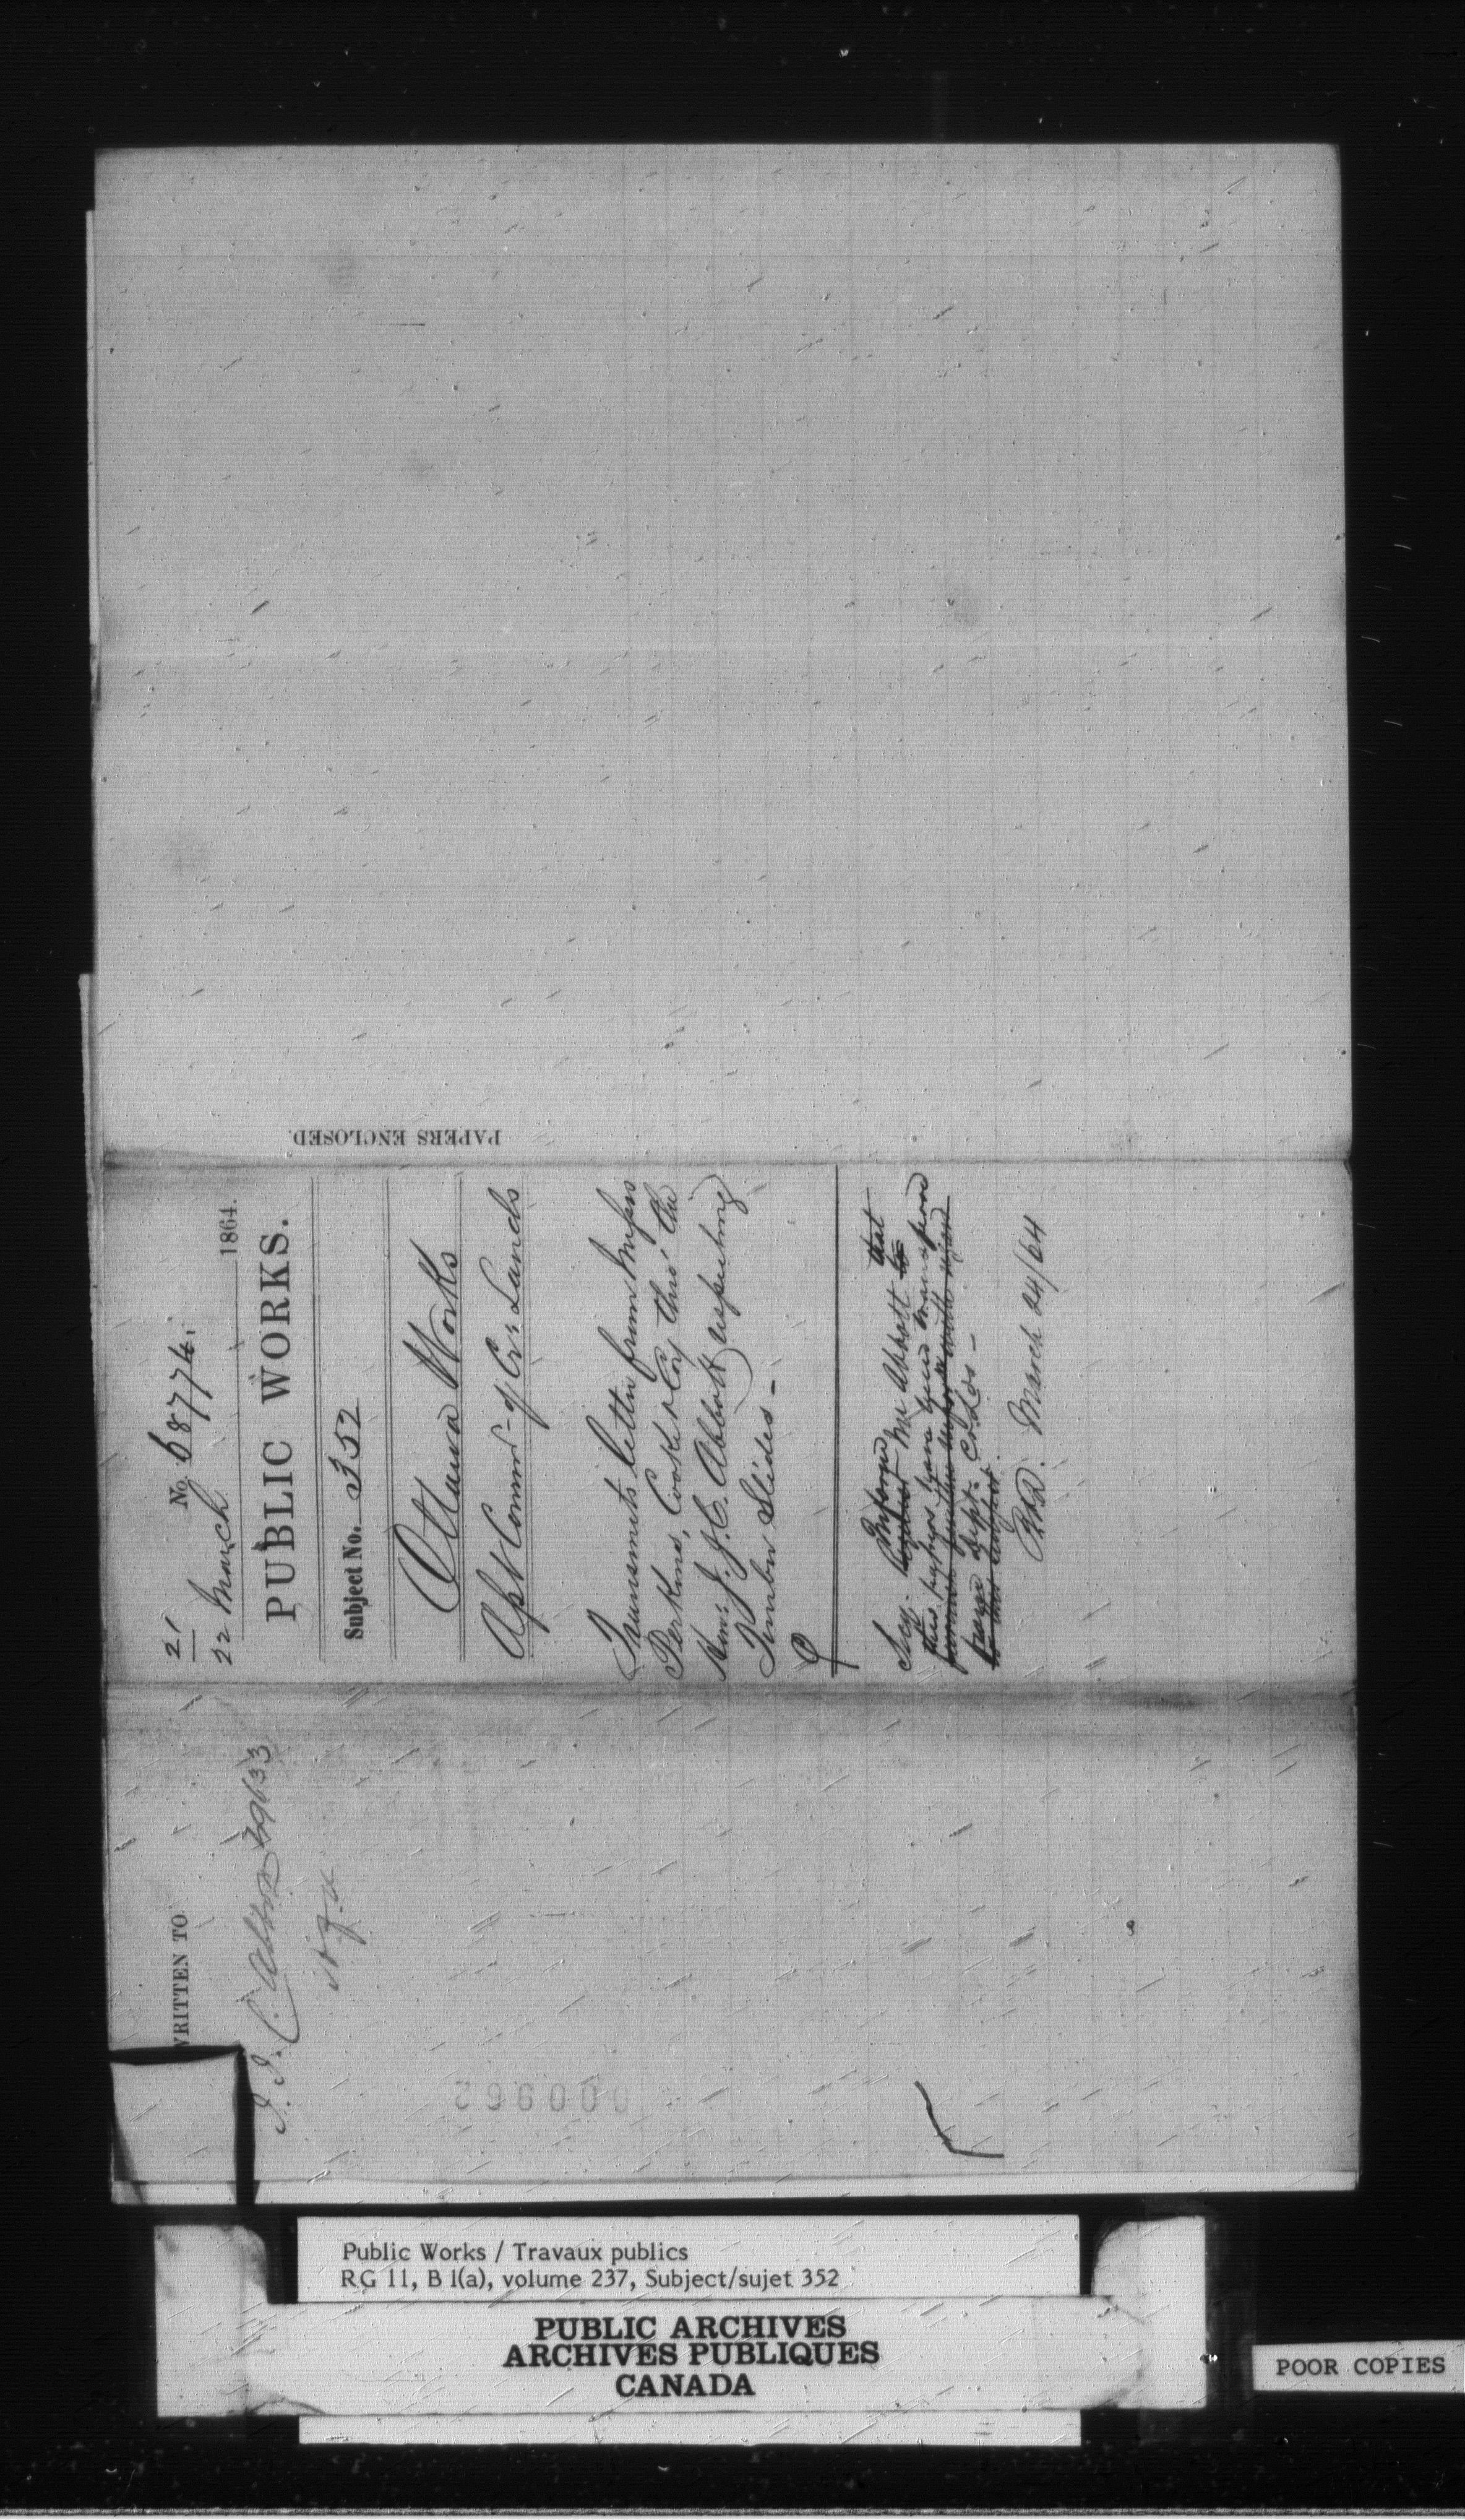 21 No. 68774.
22 March 1864.
PUBLIC WORKS.
Subject No. 352
Ottawa Works
Asst Commr of Cr. Lands
Transmits letter from Messrs
Perkins, Cooke & Coy thro' the
Hon. J. J. C. Abbott respecting
Timber Slides -
Secy. Inform Mr Abbott that
request to
this papers have been transferred
from dept. Cr Lds -
to this subject.
March 24/64
PAPERS ENCLOSED.
WRITTEN TO
J. J. C. Abbott 39633
000962
Public Works / Travaux publics
RG 11, B 1(a), volume 237, Subject/sujet 352
PUBLIC ARCHIVES
ARCHIVES PUBLIQUES
CANADA
POOR COPIES